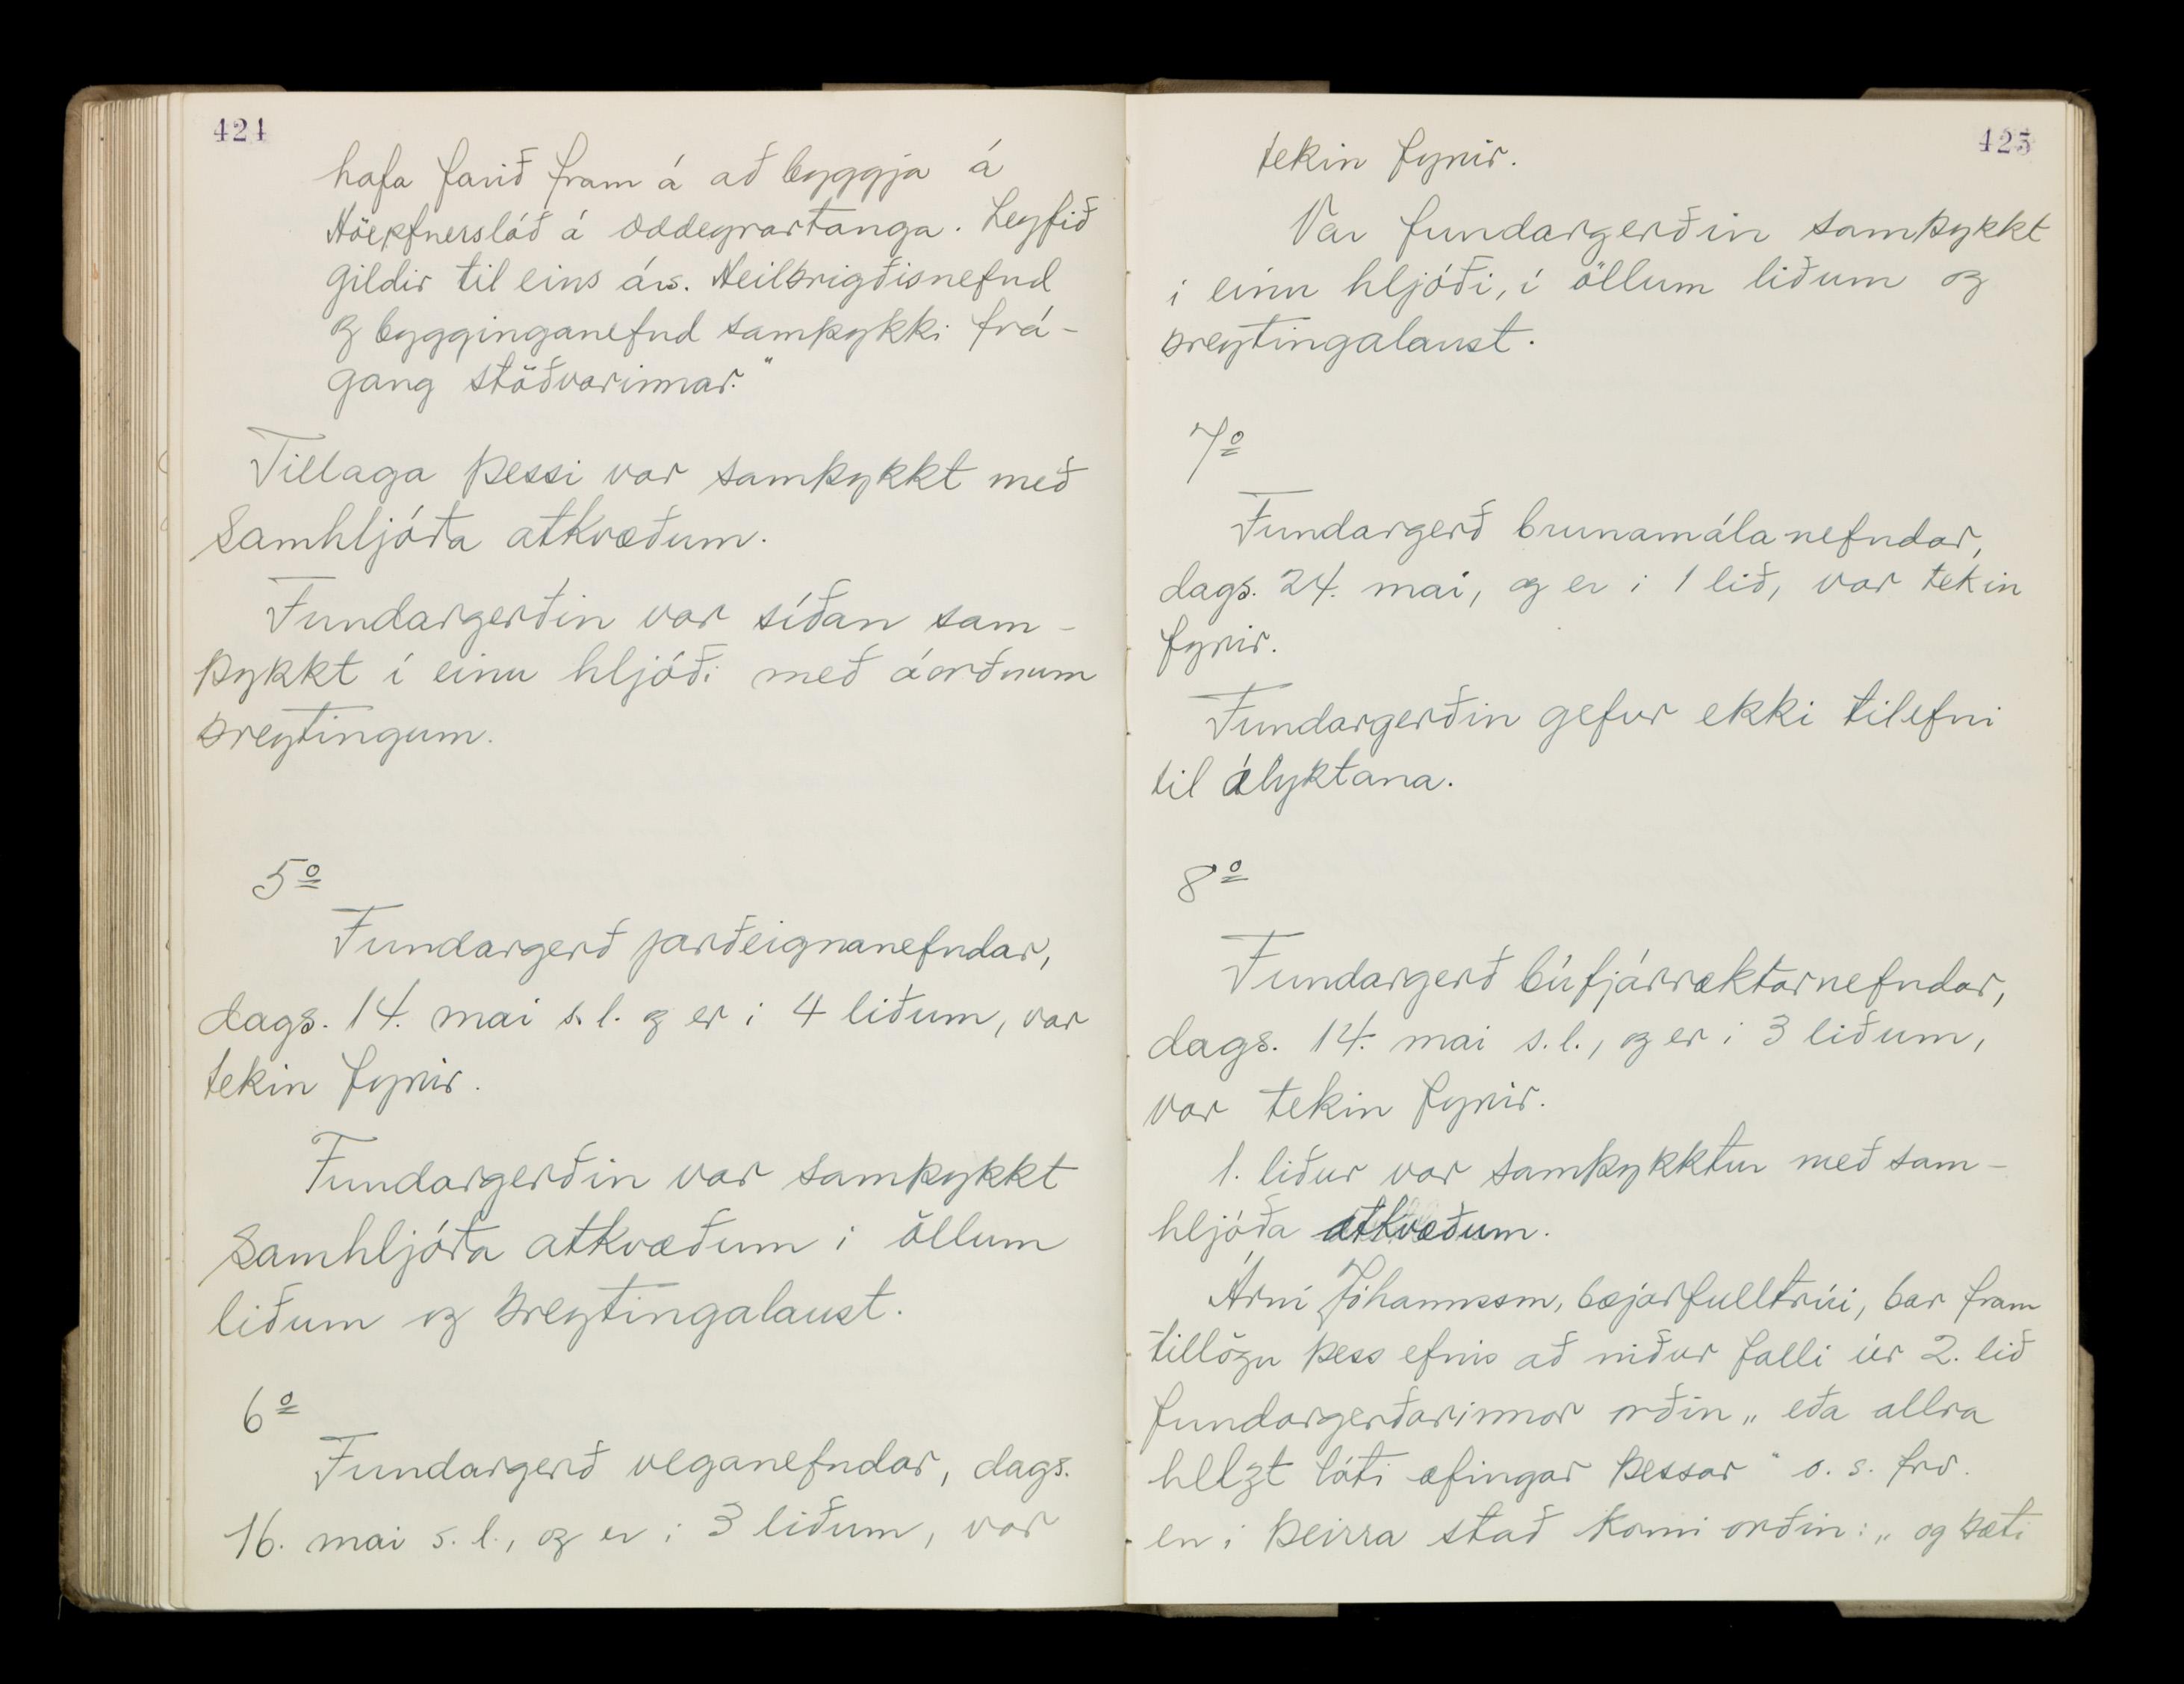 424
hafa farið fram á að byggja á
Höepfnerslóð á Oddeyrartanga. Leyfið
gildir til eins árs. Heilbrigðisnefnd
og bygginganefnd samþykki frá-
gang stöðvarinnar."
Tillaga þessi var samþykkt með
samhljóða atkvæðum.
Fundargerðin var síðan sam-
þykkt í einu hljóði með áorðnum
breytingum.
5º
Fundargerð jarðeignanefndar,
dags. 14. mai s.l. og er i 4 liðum, var
tekin fyrir.
Fundargerðin var samþykkt
samhljóða atkvæðum i öllum
liðum og breytingalaust.
6º
Fundargerð veganefndar, dags.
16. mai s.l., og er i 3 liðum, var
425
tekin fyrir.
Var fundargerðin samþykkt
i einu hljóði, í öllum liðum og
breytingalaust.
7º
Fundargerð brunamálanefndar,
dags. 24. mai, og er i 1 lið, var tekin
fyrir.
Fundargerðin gefur ekki tilefni
til ályktana.
8º
Fundargerð búfjárræktarnefndar,
dags. 14. mai s.l., og er i 3 liðum,
var tekin fyrir.
1. liður var samþykktur með sam-
hljóða atkvæðum.
Árni Jóhannsson, bæjarfulltrúi, bar fram
tillögu þess efnis að niður falli úr 2. lið
fundargerðarinnar orðin „eða allra
helzt láti æfingar þessar" o. s. frv.
en i þeirra stað komi orðin: „og þæti